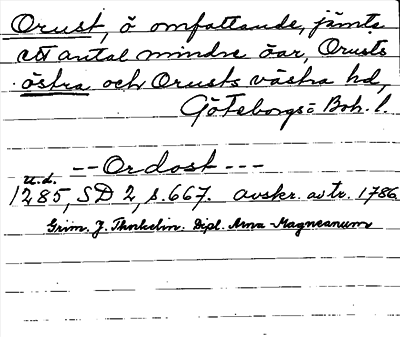 Orust, ö omfattande, jämte
ett antal mindre öar, Orusts
östra och Orusts västra hd,
Göteborgs o Boh. l.
-- Ordost ---
u.d.
1285, SD 2, s. 667. avskr. av tr. 1786
Grim. J. Thorkelin. Dipl. Arna-Magneanum